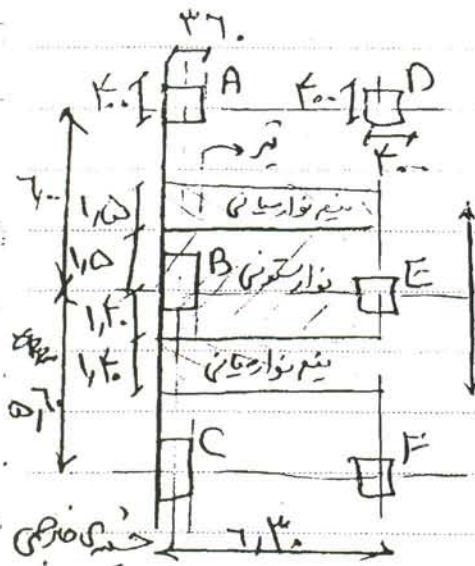 ۳۶۰
۴۰۰ A ۴۰۰ D
تیر
۴۰۰
۶٫۰۰
۱٫۵
نیم نوار میانی
۱٫۵
B نوار ستونی E
۱٫۴۰
۱٫۴۰
نیم نوار میانی
۵٫۶۰
C F
۶٫۳۰